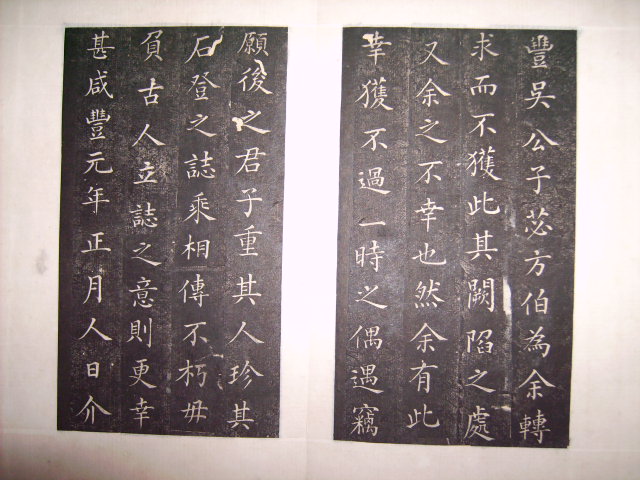 豐吳公子苾方伯為余轉
求而不獲此其闕陷之處
又余之不幸也然余有此
幸獲不過一時之偶遇竊
願後之君子重其人珍其
石登之誌乘相傳不朽毋
負古人立誌之意則更幸
甚咸豐元年正月人日介